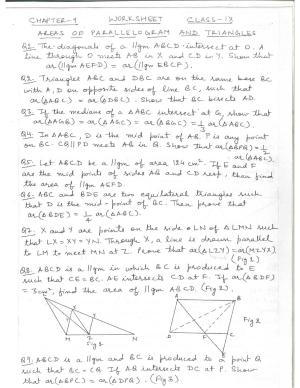 CHAPTER-9 WORKSHEET CLASS-IX
AREAS OF PARALLELOGRAM AND TRIANGLES
Q1. The diagonals of a ||gm ABCD intersect at O. A
line through O meets AB in X and CD in Y. Show that
ar(||gm AEFD) = ar(||gm EBCF).
Q2. Triangles ABC and DBC are on the same base BC
with A, D on opposite sides of line BC, such that
ar(ΔABC) = ar(ΔDBC). Show that BC bisects AD.
Q3. If the medians of a ΔABC intersect at G, show that
ar(ΔAGB) = ar(ΔAGC) = ar(ΔBGC) = 1/3 ar(ΔABC)
Q4. In ΔABC, D is the mid point of AB. P is any point
on BC. CQ||PD meets AB in Q. Show that ar(ΔBPQ) = 1/2
ar(ΔABC).
Q5. Let ABCD be a ||gm of area 124 cm². If E and F
are the mid points of sides AB and CD resp, then find
the area of ||gm AEFD.
Q6. ABC and BDE are two equilateral triangles such
that D is the mid-point of BC. Then prove that
ar(ΔBDE) = 1/4 ar(ΔABC).
Q7. X and Y are points on the side LN of ΔLMN such
that LX = XY = YN. Through X, a line is drawn parallel
to LM to meet MN at Z. Prove that ar(ΔLZY) = ar(MZYX)
(Fig 1)
Q8. ABCD is a ||gm in which BC is produced to E
such that CE = BC. AE intersects CD at F. If ar(ΔBDF)
= 3cm², find the area of ||gm ABCD. (Fig 2).
A B
Fig 2
M Z N
D F C
Fig 1
E
Q9. ABCD is a ||gm and BC is produced to a point Q
such that BC = CQ. If AQ intersects DC at P. Show
that ar(ΔBPC) = ar(ΔDPQ). (Fig 3).